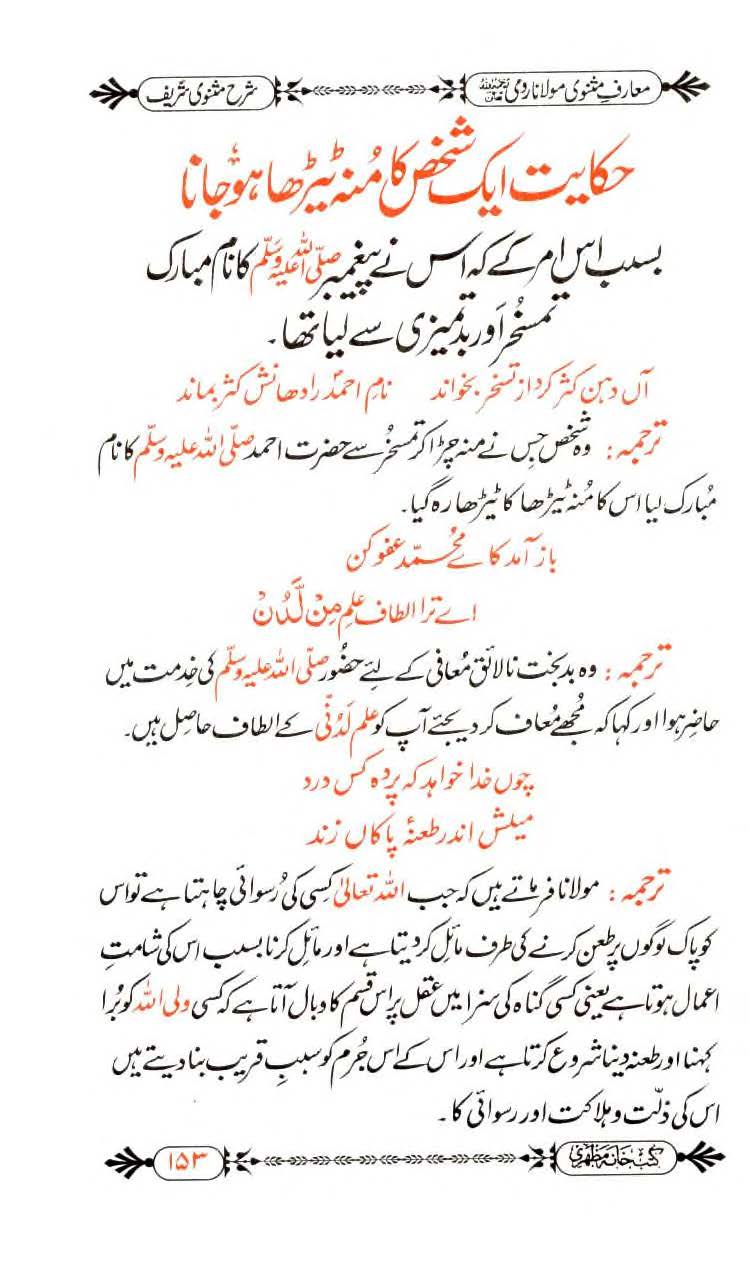 معارفِ مثنوی مولانا رومی رحمۃ اللہ تعالیٰ علیہ شرح مثنوی شریف
حکایت ایک شخص کا مُنہ ٹیڑھا ہوجانا
بسبب اس امر کے کہ اس نے پیغمبر صلّی اللہ علیہ وسلّم کا نام مبارک
تمسخُر اَور بدتمیزی سے لیا تھا۔
آں دہن کثر کرد از تسخر بخواند نامِ احمدؐ را دھانش کثر بماند
ترجمہ: وہ شخص جس نے منہ چڑا کر تمسخُر سے حضرت احمد صلّی اللہ علیہ وسلّم کا نام
مُبارک لیا اس کا مُنہ ٹیڑھا کا ٹیڑھا رہ گیا۔
باز آمد کاے محُمّد عفو کن
اے ترا الطاف علِم مِنْ لَّدُنْ
ترجمہ: وہ بدبخت نالائق مُعافی کے لئے حضُور صلّی اللہ علیہ وسلّم کی خِدمت میں
حاضِر ہوا اور کہا کہ مُجھے مُعاف کر دیجئے آپ کو علم لَدُنّی کے الطاف حاصِل ہیں۔
چوں خدا خواہد کہ پردہ کس درد
میلش اندر طعنۂ پاکاں زند
ترجمہ: مولانا فرماتے ہیں کہ جب اللہ تعالیٰ کسِی کی رُسوائی چاہتا ہے تو اس
کو پاک لوگوں پر طعن کرنے کی طرف مائل کر دیتا ہے اور مائل کرنا بسبب اس کی شامتِ
اعمال ہوتا ہے یعنی کسی گناہ کی سزا میں عقل پر اس قسم کا وبال آتا ہے کہ کسی ولی اللہ کو بُرا
کہنا اور طعنہ دینا شروع کرتا ہے اور اس کے اس جُرم کو سببِ قریب بنا دیتے ہیں
اس کی ذلّت و ہلاکت اور رسوائی کا۔
کتب خانہ مظہری ۱۵۳